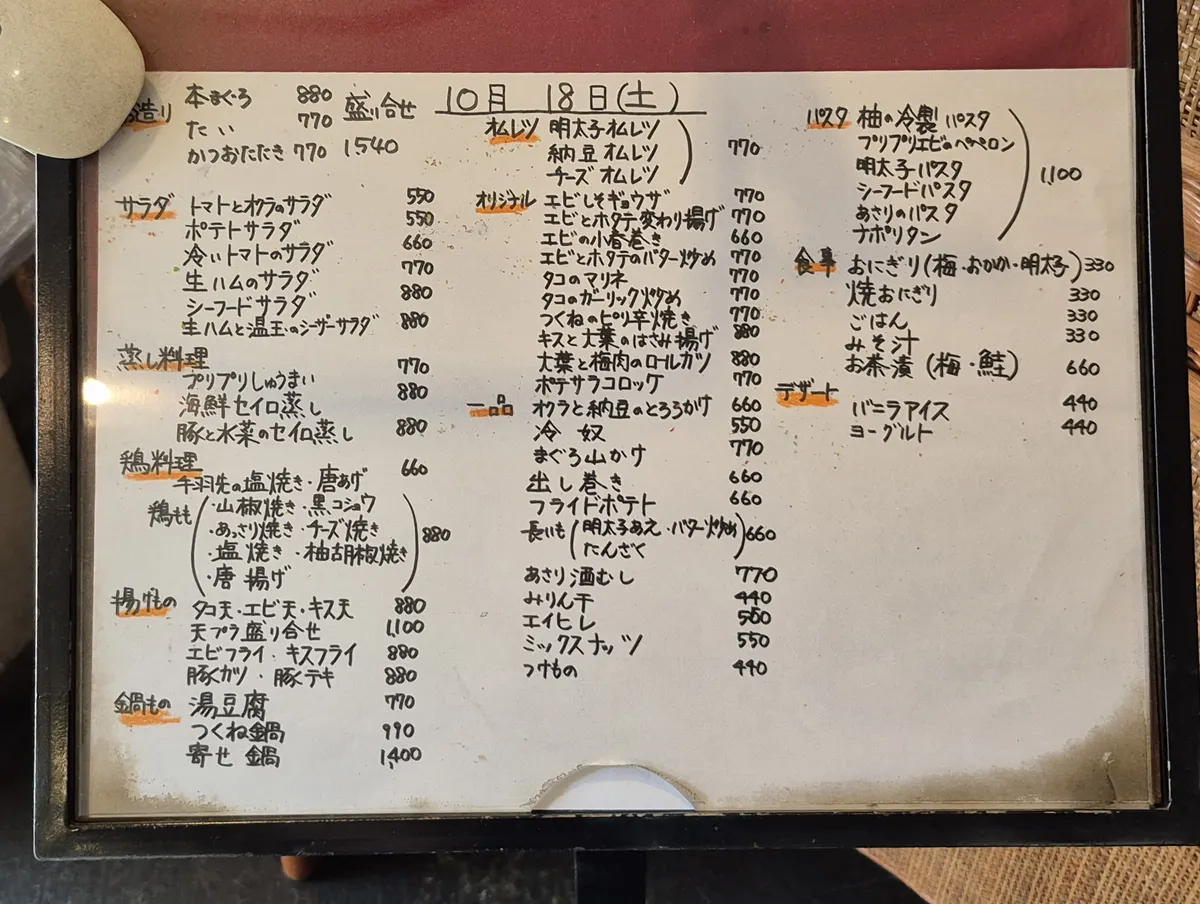 10月 18日(土)
造り 本まぐろ 880 盛り合せ
たい 770
かつおたたき 770 1,540
サラダ トマトとオクラのサラダ 550
ポテトサラダ 550
冷いトマトのサラダ 660
生ハムのサラダ 770
シーフードサラダ 880
生ハムと温玉のシーザーサラダ 880
蒸し料理
プリプリしゅうまい 770
海鮮セイロ蒸し 880
豚と水菜のセイロ蒸し 880
鶏料理
手羽先の塩焼き・唐あげ 660
鶏もも ・山椒焼き・黒コショウ
・あっさり焼き・チーズ焼き 880
・塩焼き・柚胡椒焼き
・唐揚げ
揚げもの タコ天・エビ天・キス天 880
天プラ盛り合せ 1,100
エビフライ・キスフライ 880
豚カツ・豚テキ 880
鍋もの 湯豆腐 770
つくね鍋 990
寄せ鍋 1,400
オムレツ 明太子オムレツ
納豆オムレツ 770
チーズオムレツ
オリジナル エビしそギョウザ 770
エビとホタテ変わり揚げ 770
エビの小春巻き 660
エビとホタテのバター炒め 770
タコのマリネ 770
タコのガーリック炒め 770
つくねのピリ辛焼き 770
キスと大葉のはさみ揚げ 880
大葉と梅肉のロールカツ 880
ポテサラコロッケ 770
一品 オクラと納豆のとろろかけ 660
冷奴 550
まぐろ山かけ 770
出し巻き 660
フライドポテト 660
長いも (明太子あえ・バター炒め) 660
たんざく
あさり酒むし 770
みりん干 440
エイヒレ
ミックスナッツ 550
つけもの 440
パスタ 柚の冷製パスタ
プリプリエビのペペロン
明太子パスタ 1,100
シーフードパスタ
あさりのパスタ
ナポリタン
食事 おにぎり(梅・おかか・明太子) 330
焼おにぎり 330
ごはん 330
みそ汁 330
お茶漬(梅・鮭) 660
デザート
バニラアイス 440
ヨーグルト 440